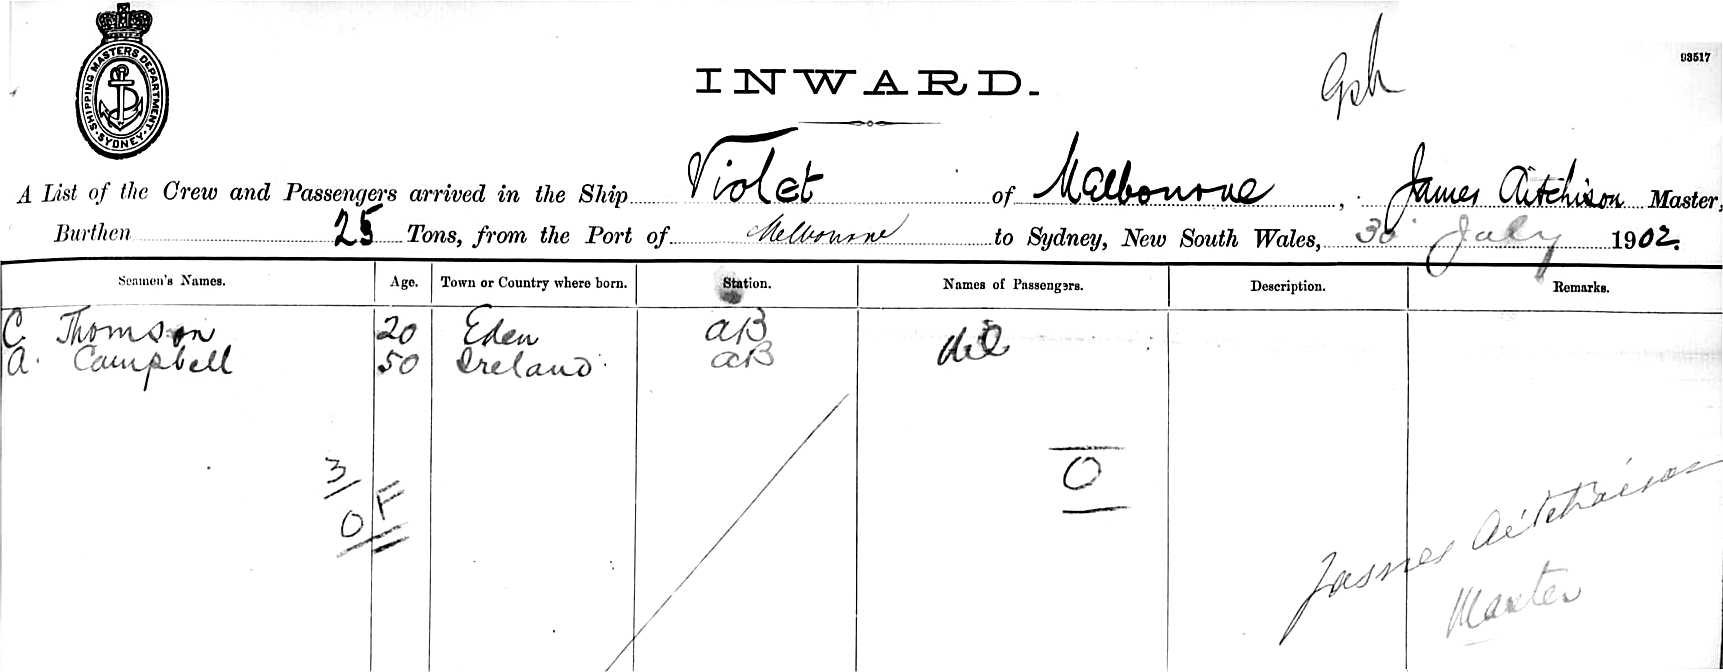 SHIPPING MASTERS DEPARTMENT · SYDNEY ·
93517
INWARD.
A List of the Crew and Passengers arrived in the Ship Violet of Melbourne, James Aitchison Master,
Burthen 25 Tons, from the Port of Melbourne to Sydney, New South Wales, 30 July 1902.
Seamen's Names. Age. Town or Country where born. Station. Names of Passengers. Description. Remarks.
C. Thomson 20 Eden AB Nil
A. Campbell 50 Ireland AB
3/
0 F 0
James Aitchison
Master